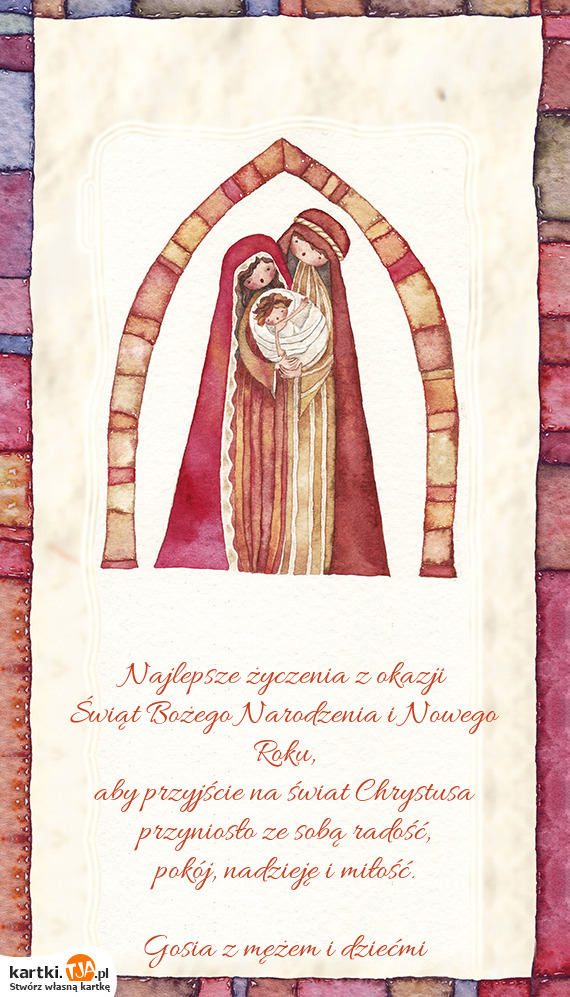 Najlepsze życzenia z okazji
Świąt Bożego Narodzenia i Nowego
Roku,
aby przyjście na świat Chrystusa
przyniosło ze sobą radość,
pokój, nadzieję i miłość.
Gosia z mężem i dziećmi
kartki.TJA.pl
Stwórz własną kartkę